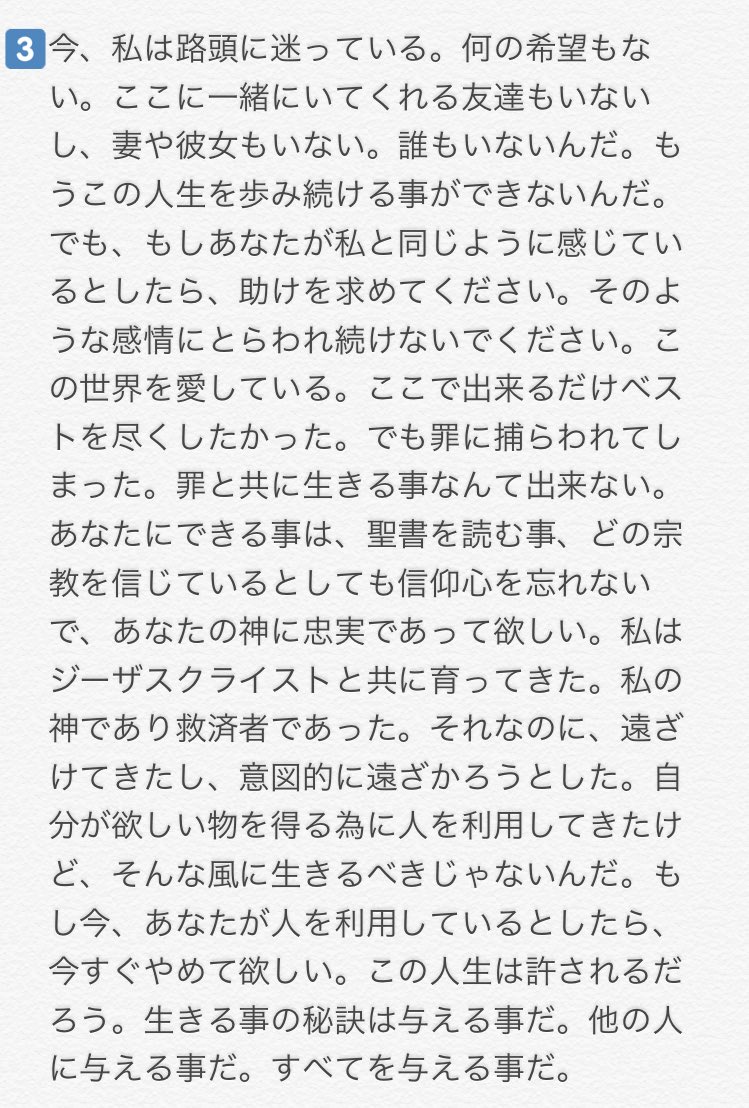 3 今、私は路頭に迷っている。何の希望もな
い。ここに一緒にいてくれる友達もいない
し、妻や彼女もいない。誰もいないんだ。も
うこの人生を歩み続ける事ができないんだ。
でも、もしあなたが私と同じように感じてい
るとしたら、助けを求めてください。そのよ
うな感情にとらわれ続けないでください。こ
の世界を愛している。ここで出来るだけベス
トを尽くしたかった。でも罪に捕らわれてし
まった。罪と共に生きる事なんて出来ない。
あなたにできる事は、聖書を読む事、どの宗
教を信じているとしても信仰心を忘れない
で、あなたの神に忠実であって欲しい。私は
ジーザスクライストと共に育ってきた。私の
神であり救済者であった。それなのに、遠ざ
けてきたし、意図的に遠ざかろうとした。自
分が欲しい物を得る為に人を利用してきたけ
ど、そんな風に生きるべきじゃないんだ。も
し今、あなたが人を利用しているとしたら、
今すぐやめて欲しい。この人生は許されるだ
ろう。生きる事の秘訣は与える事だ。他の人
に与える事だ。すべてを与える事だ。